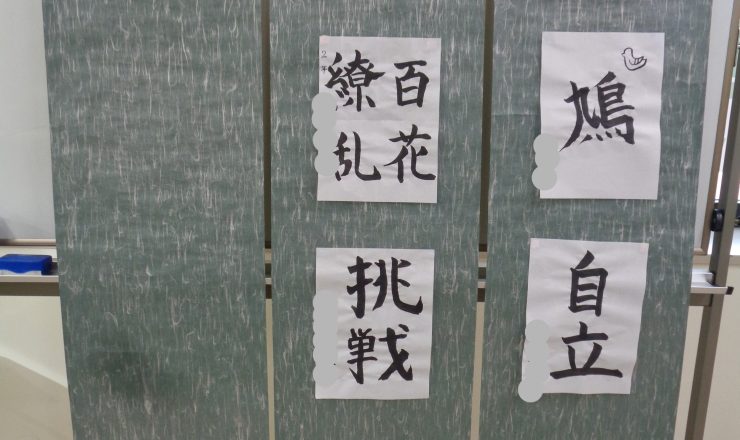 鳩
自立
百花
繚乱
2年
挑戦